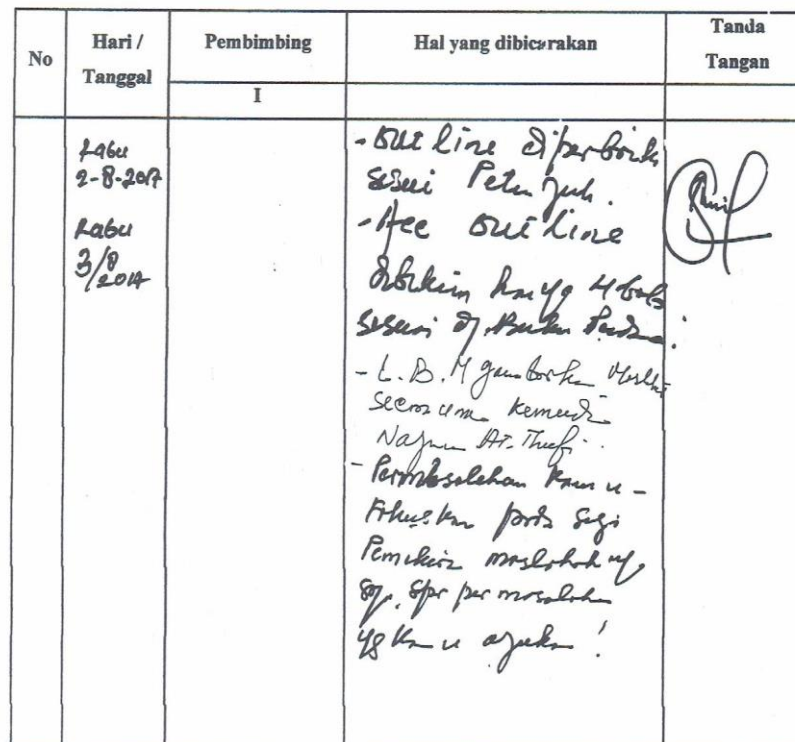 No
Hari /
Tanggal
Pembimbing
Hal yang dibicarakan
Tanda
Tangan
I
Rabu
2-8-2017
Rabu
3/8
2017
- Out line diperbaiki
sesuai Petunjuk.
- Acc Out Line
4 bab
sesuai Buku
- L.B.M gambarkan
secara umum kemudi
Najmu At-Thufi.
- Permasalahan kamu
Fokuskan pada segi
Pemikiran maslahah yg
permasalahan
yg kamu ajukan !